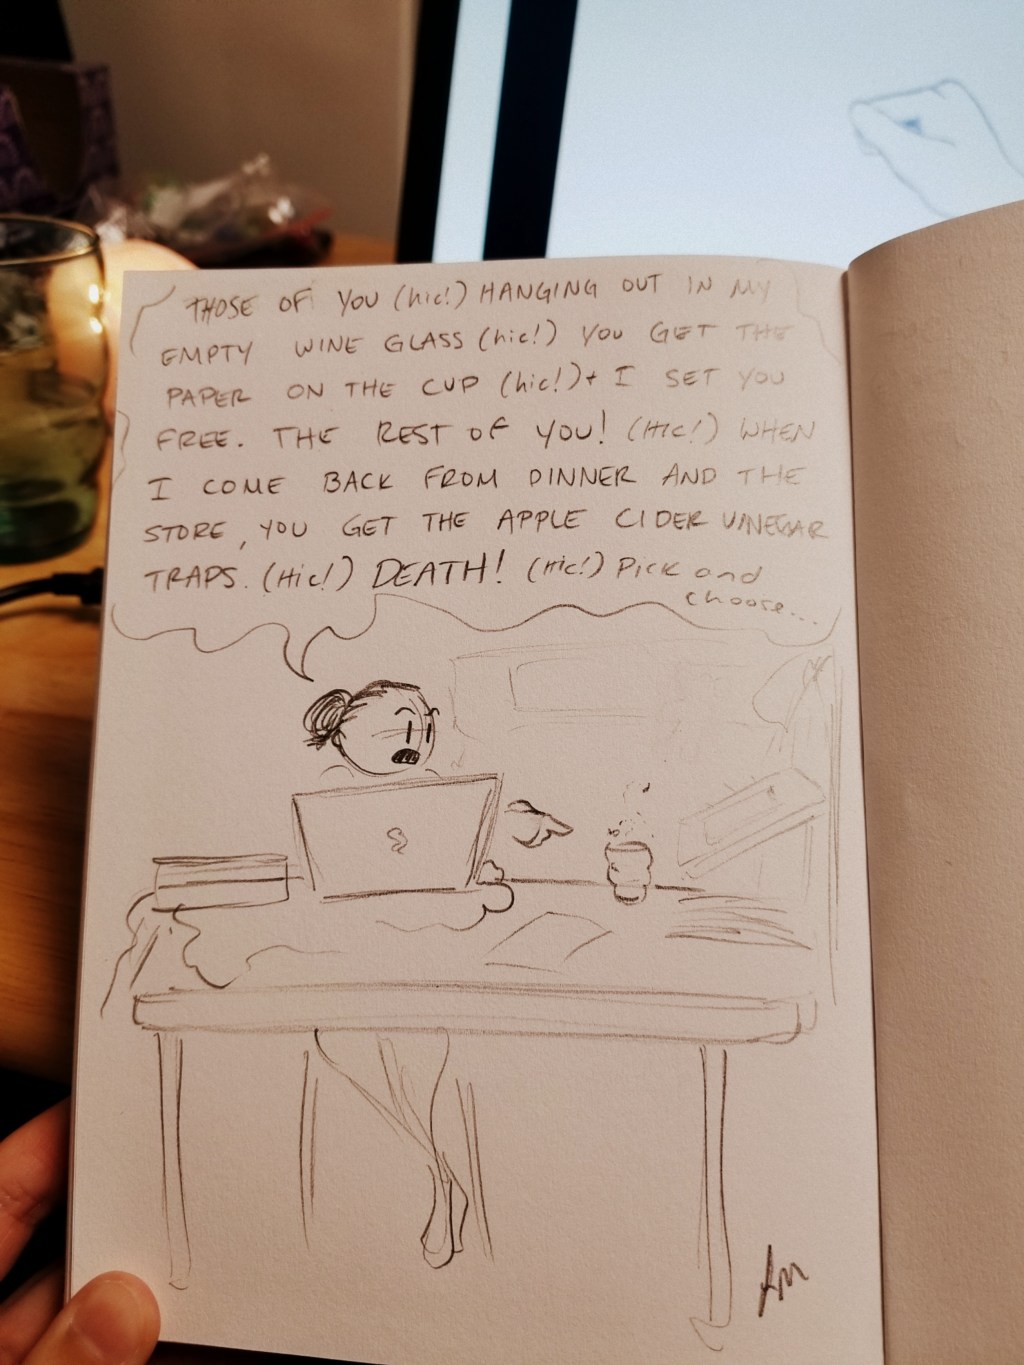 THOSE OF YOU (hic!) HANGING OUT IN MY
EMPTY WINE GLASS (hic!) YOU GET THE
PAPER ON THE CUP (hic!) + I SET YOU
FREE. THE REST OF YOU! (HIC!) WHEN
I COME BACK FROM DINNER AND THE
STORE, YOU GET THE APPLE CIDER VINEGAR
TRAPS. (HIC!) DEATH! (HIC!) PICK and
choose...